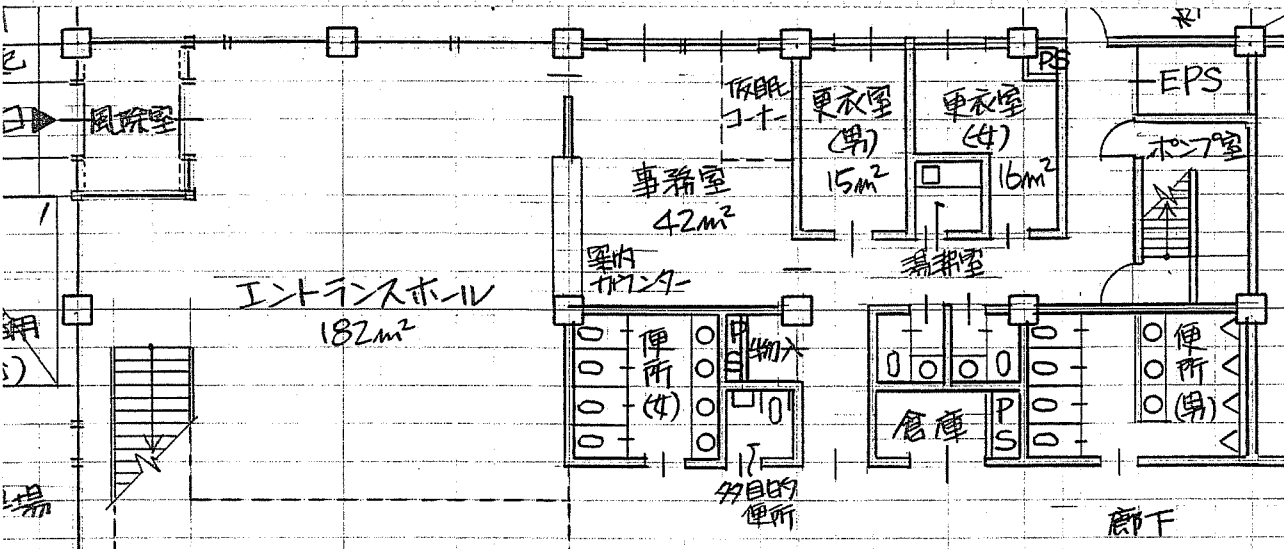 風除室
仮眠
コーナー
更衣室
(男)
15m²
更衣室
(女)
16m²
PS
EPS
ポンプ室
事務室
42m²
案内
カウンター
湯沸室
エントランスホール
182m²
便
所
(女)
PS
物入
多目的
便所
倉庫
PS
便
所
(男)
廊下